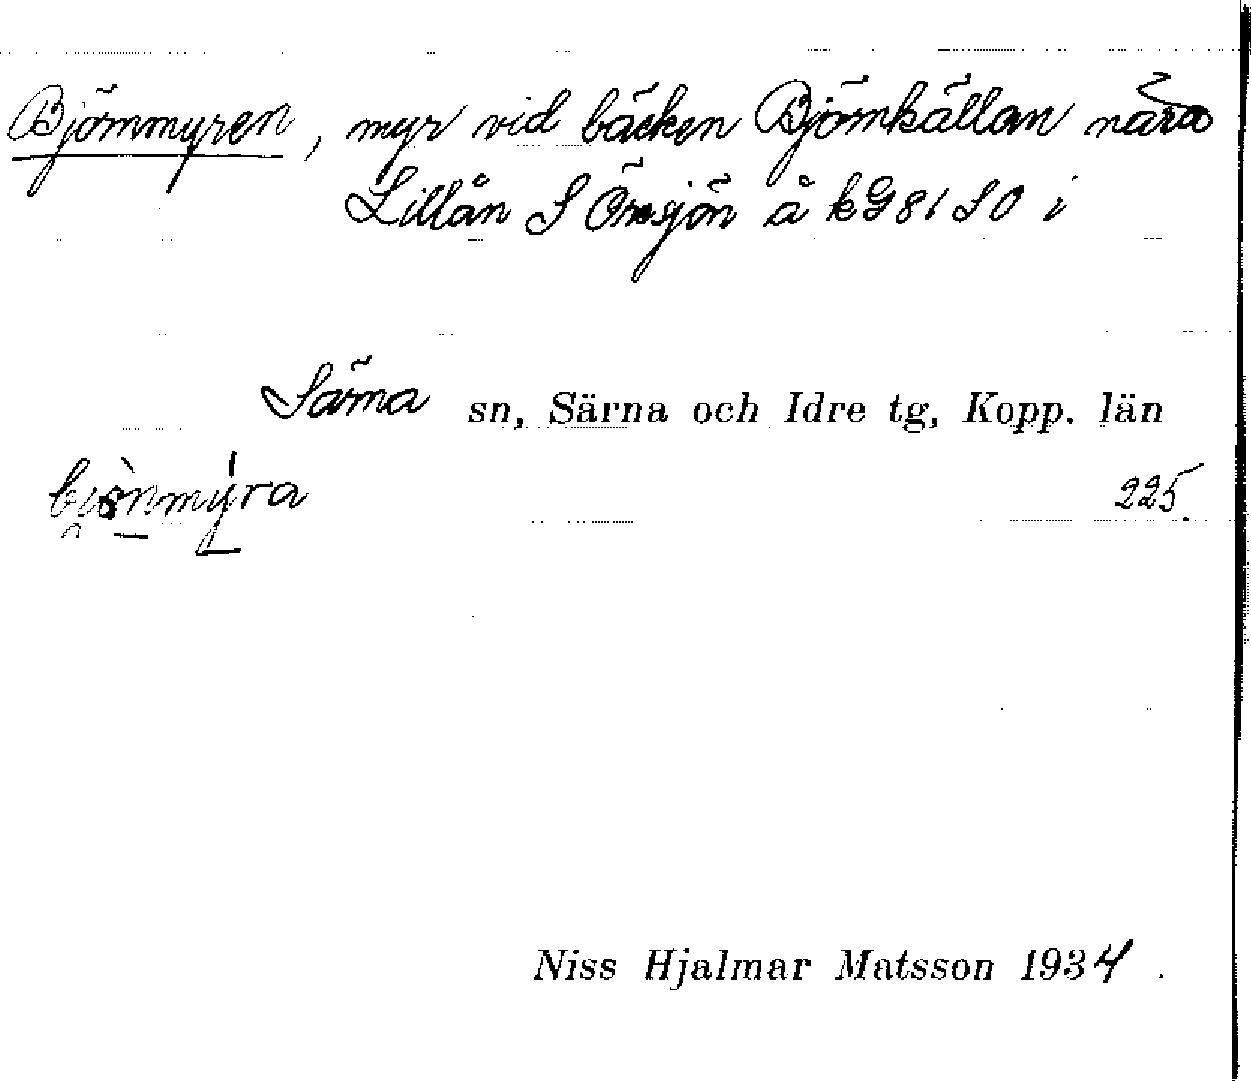 Björnmyren, myr vid bäcken Björnkällan nära
Lillån S Örsjön å kG81 SO i
Särna sn, Särna och Idre tg, Kopp. län
225.
Niss Hjalmar Matsson 1934.